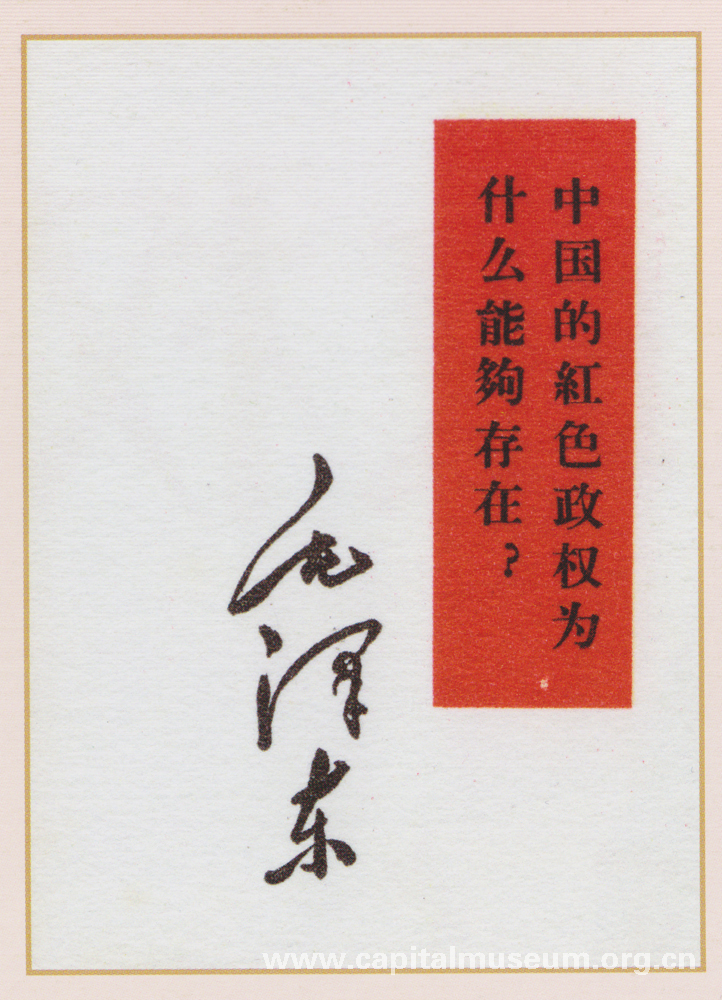 中国的紅色政权为
什么能夠存在？
毛泽东
www.capitalmuseum.org.cn